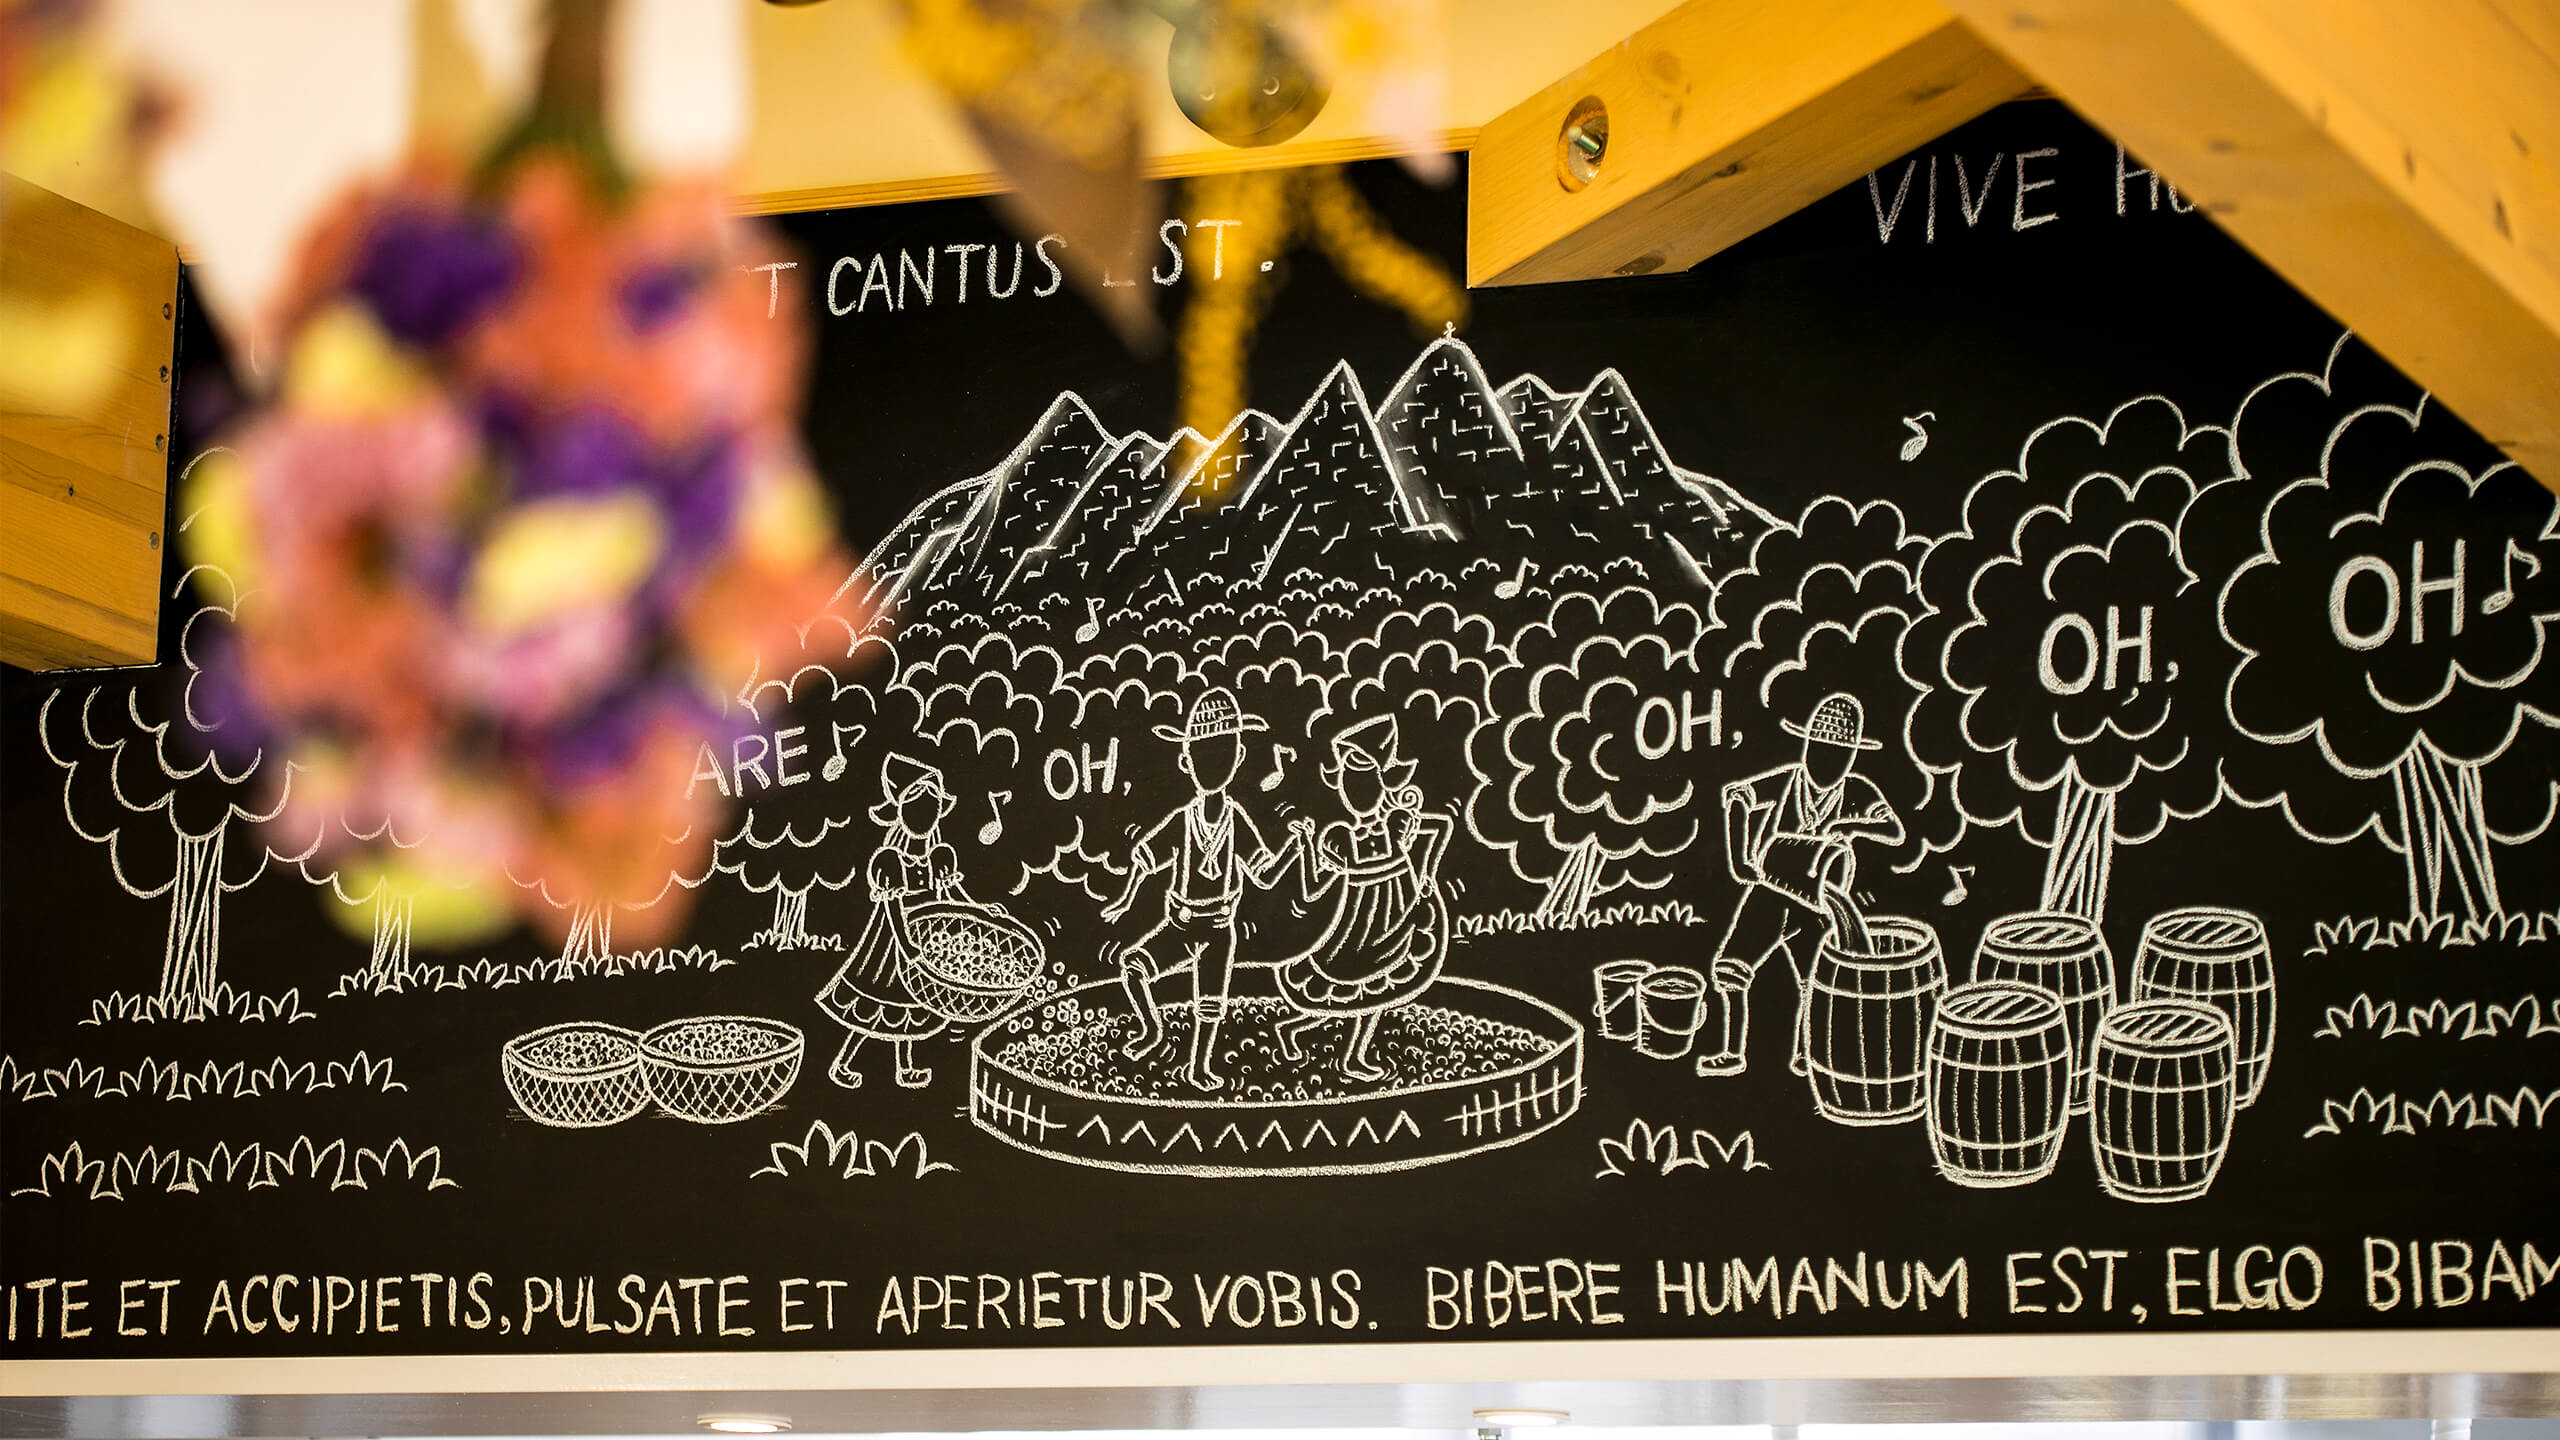 CANTUS EST.
VIVE
ARE OH, OH, OH, OH
ET ACCIPIETIS, PULSATE ET APERIETUR VOBIS. BIBERE HUMANUM EST, ELGO BIBAM